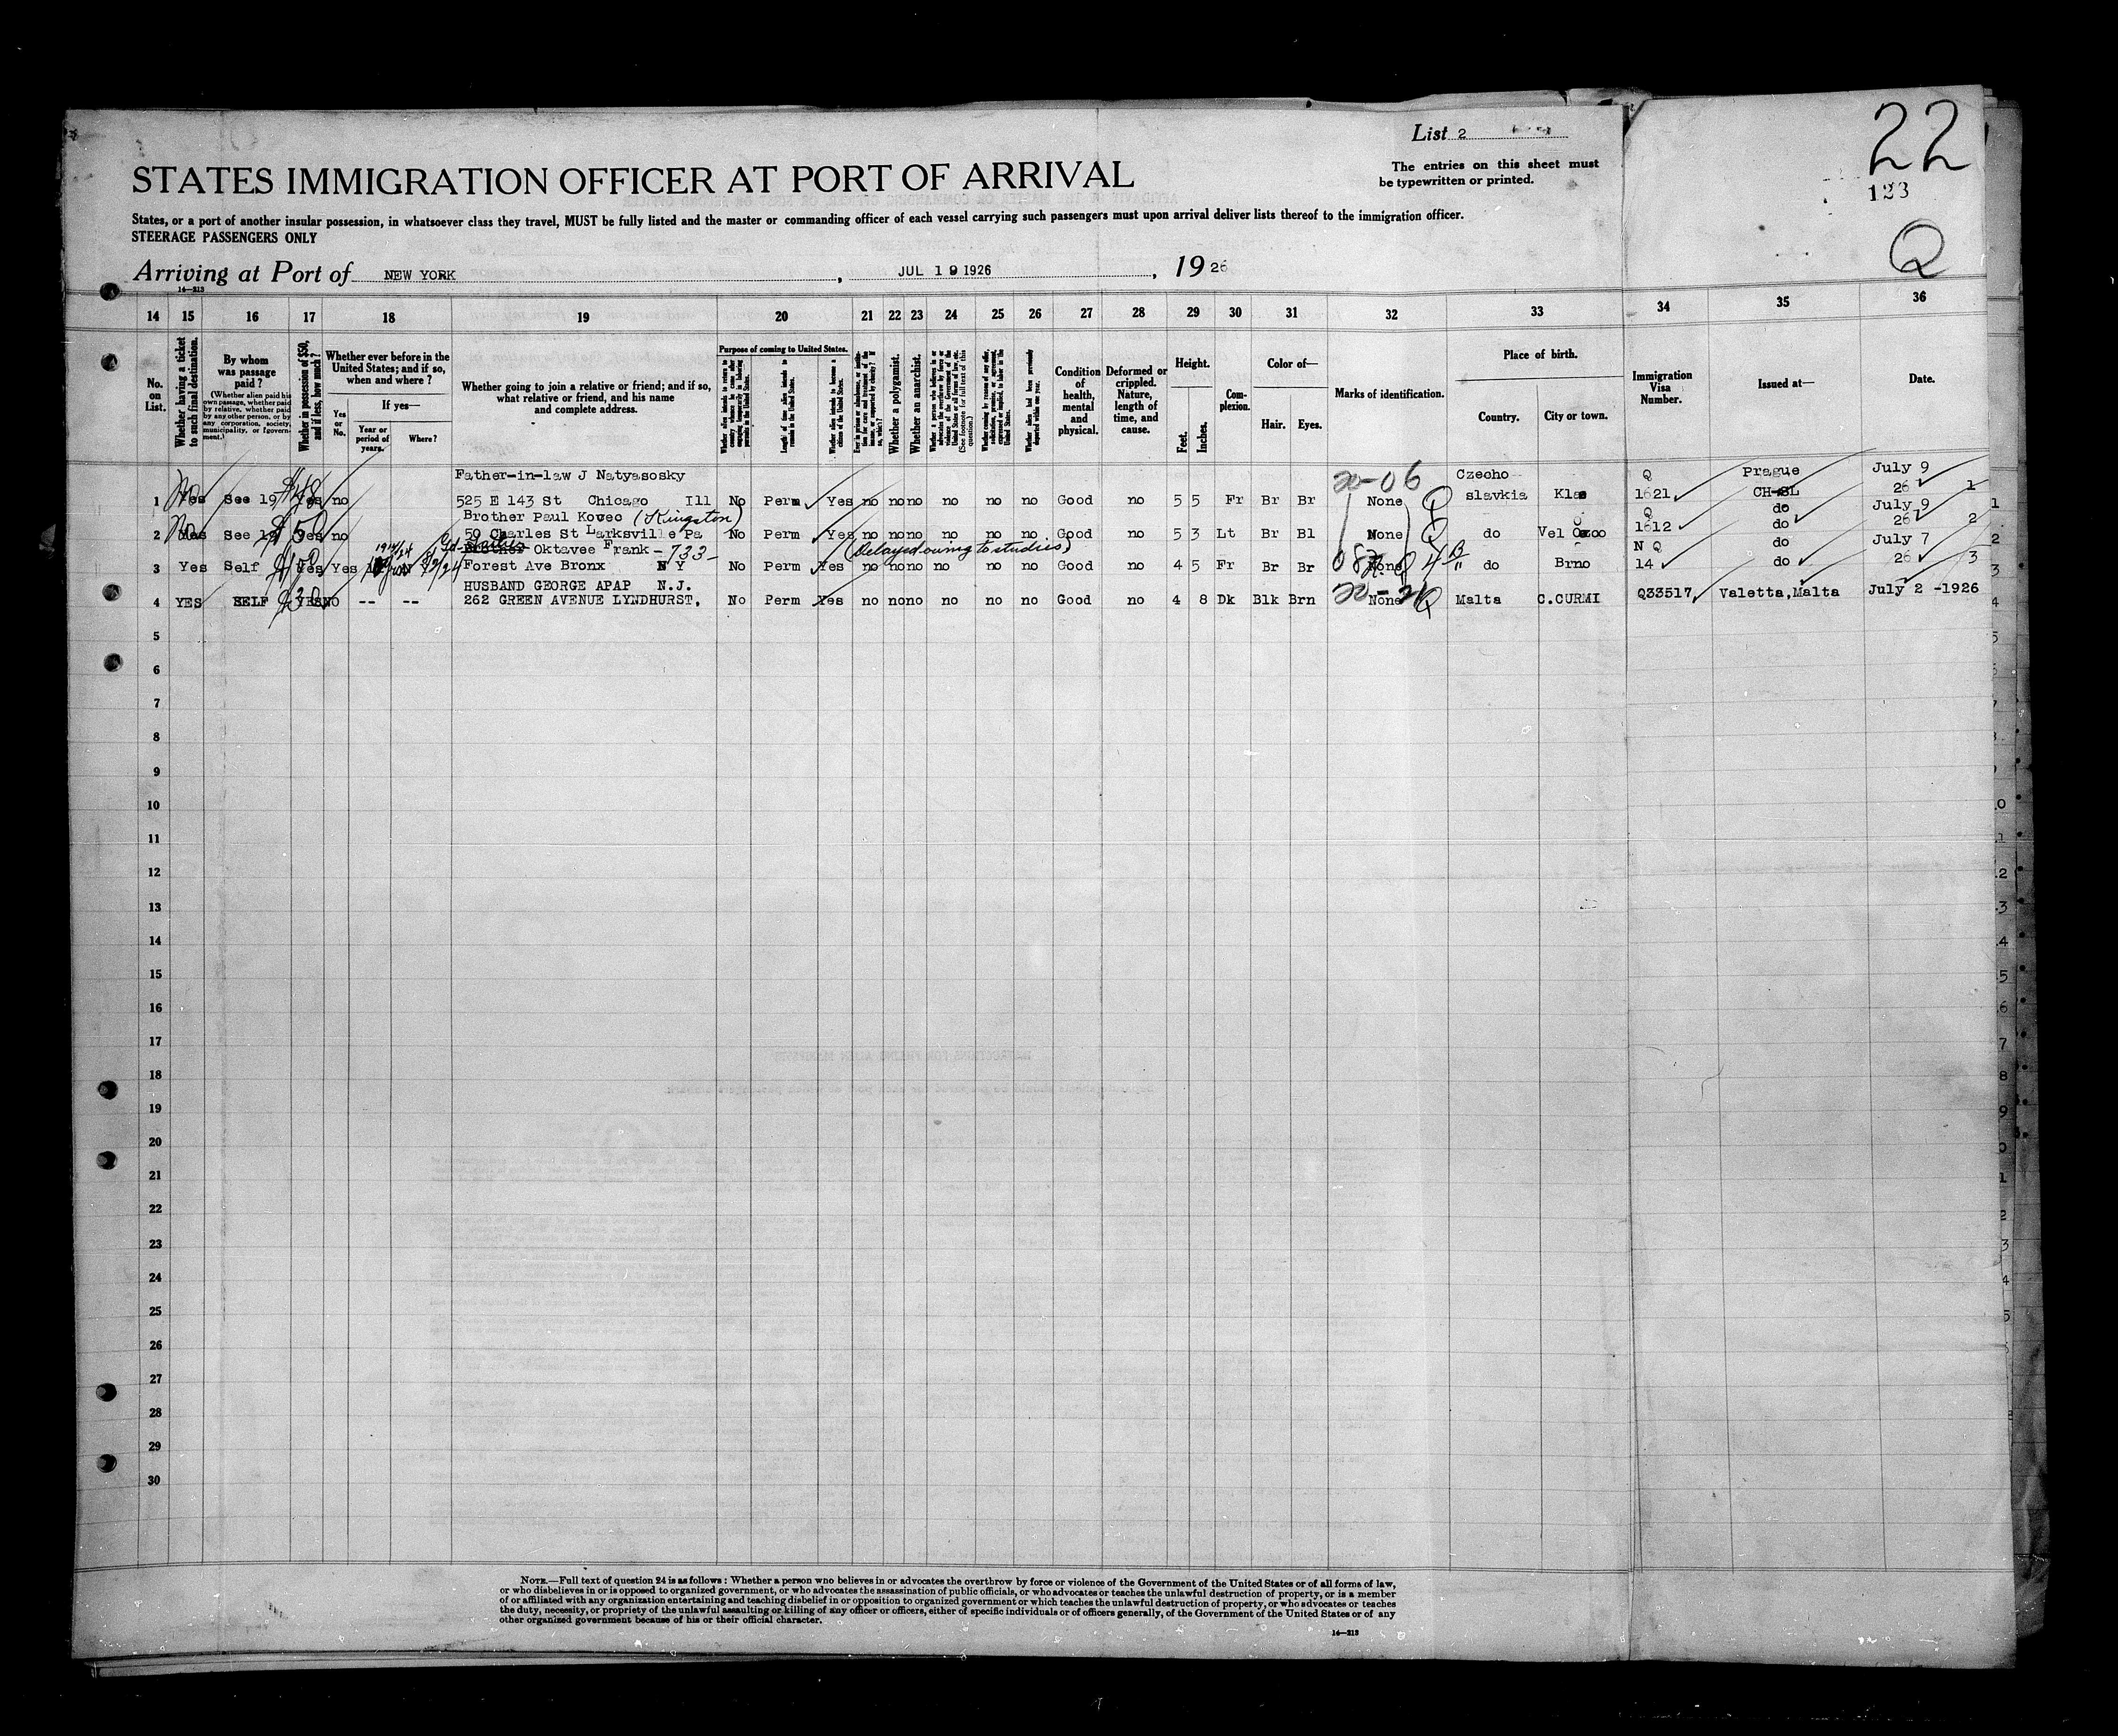 List 2
22
123
Q
The entries on this sheet must
be typewritten or printed.
STATES IMMIGRATION OFFICER AT PORT OF ARRIVAL
States, or a port of another insular possession, in whatsoever class they travel, MUST be fully listed and the master or commanding officer of each vessel carrying such passengers must upon arrival deliver lists thereof to the immigration officer.
STEERAGE PASSENGERS ONLY
Arriving at Port of NEW YORK, JUL 19 1926, 1926
14—213
14 15 16 17 18 19 20 21 22 23 24 25 26 27 28 29 30 31 32 33 34 35 36
No. on List.
Whether having a ticket to such final destination.
By whom was passage paid?
(Whether alien paid his own passage, whether paid by relative, whether paid by any other person, or by any corporation, society, municipality, or government.)
Whether in possession of $50, and if less, how much?
Whether ever before in the United States; and if so, when and where?
Yes or No.
If yes—
Year or period of years.
Where?
Whether going to join a relative or friend; and if so, what relative or friend, and his name and complete address.
Purpose of coming to United States.
Length of time alien intends to remain in the United States.
Whether alien intends to become a citizen of the United States.
Whether a polygamist.
Whether an anarchist.
Condition of health, mental and physical.
Deformed or crippled. Nature, length of time, and cause.
Height.
Feet.
Inches.
Complexion.
Color of—
Hair.
Eyes.
Marks of identification.
Place of birth.
Country.
City or town.
Immigration Visa Number.
Issued at—
Date.
Father-in-law J Natyasosky 20-06 Czecho Q Prague July 9
1 No Yes See 19 $48 Yes no 525 E 143 St Chicago Ill No Perm Yes no no no no no no Good no 5 5 Fr Br Br None Q slavkia 1621 CH-SL 26 1
Brother Paul Kovec (Kingston) Q do July 9
2 No Yes See 19 $50 Yes no 59 Charles St Larksville Pa No Perm Yes no no no no no no Good no 5 3 Lt Br Bl None Q do Vel 1612 do 26 2
Oktavee Frank - 733 - (Delayed owing to studies) N Q do July 7
3 Yes Self Yes Yes Forest Ave Bronx N Y No Perm Yes no no no no no no Good no 4 5 Fr Br Br None do Brno 14 do 26 3
HUSBAND GEORGE APAP N.J. 20-21
4 YES SELF YES NO -- -- 262 GREEN AVENUE LYNDHURST, No Perm Yes no no no no no no Good no 4 8 Dk Blk Brn None Q Malta C.CURMI Q33517 Valetta,Malta July 2 -1926
5
6
7
8
9
10
11
12
13
14
15
16
17
18
19
20
21
22
23
24
25
26
27
28
29
30
NOTE.—Full text of question 24 is as follows: Whether a person who believes in or advocates the overthrow by force or violence of the Government of the United States or of all forms of law,
or who disbelieves in or is opposed to organized government, or who advocates the assassination of public officials, or who advocates or teaches the unlawful destruction of property, or is a member
of or affiliated with any organization entertaining and teaching disbelief in or opposition to organized government or which teaches the unlawful destruction of property, or who advocates or teaches
the duty, necessity, or propriety of the unlawful assaulting or killing of any officer or officers, either of specific individuals or of officers generally, of the Government of the United States or of any
other organized government because of his or their official character.
14—213